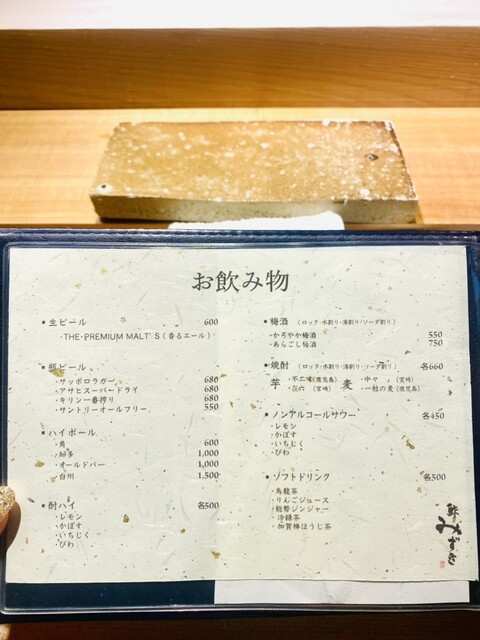 お飲み物
■生ビール 600
・THE・PREMIUM MALT'S(香るエール)
■瓶ビール
・サッポロラガー 680
・アサヒスーパードライ 680
・キリン一番搾り 680
・サントリーオールフリー 550
■ハイボール
・角 600
・知多 1,000
・オールドパー 1,000
・白州 1,500
■酎ハイ 各500
・レモン
・かぼす
・いちじく
・びわ
■梅酒 (ロック・水割り・湯割り・ソーダ割り)
・かろやか梅酒 550
・あらごし梅酒 750
■焼酎 (ロック・水割り・湯割り・ソーダ割り) 各660
芋 ・不二才(鹿児島) 麦 ・中々 (宮崎)
・㐂六 (宮崎) ・一粒の麦(鹿児島)
■ノンアルコールサワー 各450
・レモン
・かぼす
・いちじく
・びわ
■ソフトドリンク 各500
・烏龍茶
・りんごジュース
・能勢ジンジャー
・冷緑茶
・加賀棒ほうじ茶
鮓 みずき